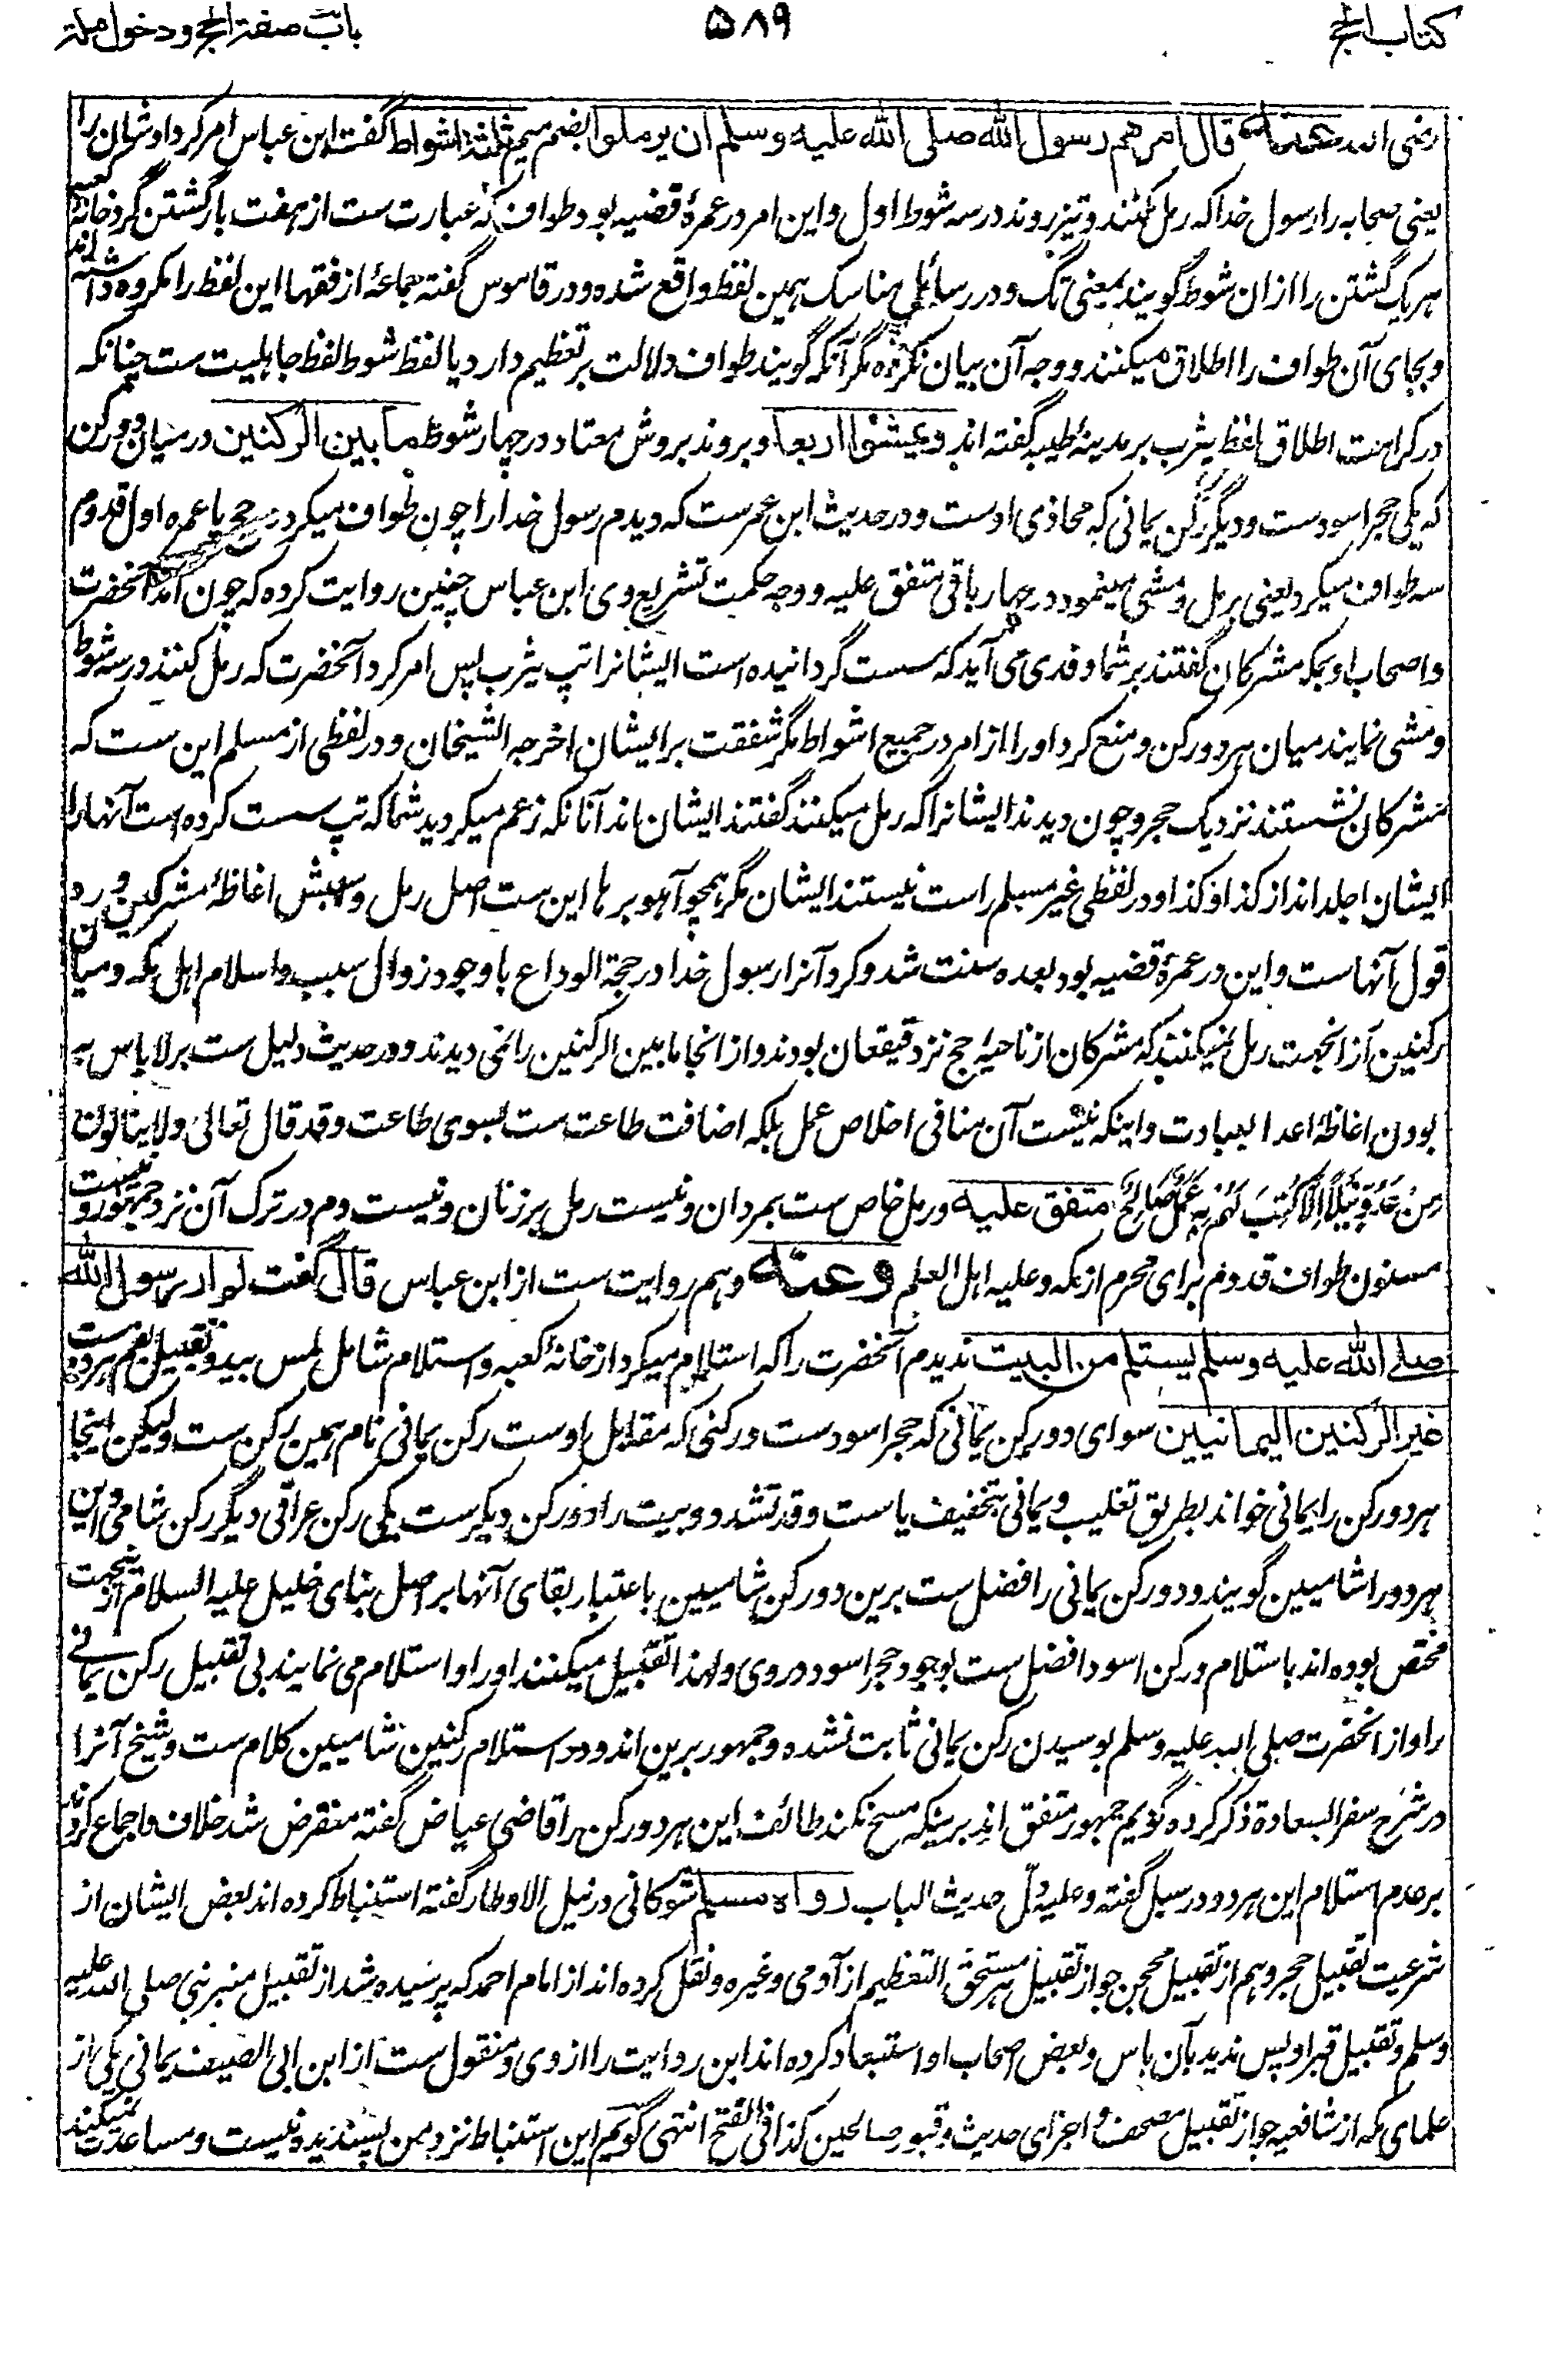 کتاب الحج
۵۸۹
باب صفة الحج ودخول مکة
رضی الله عنهما قال امرهم رسول الله صلی الله علیه وسلم ان یرملوا بضم میم ثلثة اشواط گفت ابن عباس امر کرد اوشان را
یعنی صحابه را رسول خدا که رمل کنند و تیز روند در سه شوط اول و این امر در عمرهٔ قضیه بود طواف که عبارت ست از هفت بار گشتن گرد خانهٔ کعبه
هر یک گشتن را ازان شوط گویند بمعنی تگ و در رسائل مناسک همین لفظ واقع شده و در قاموس گفته جماعهٔ از فقها این لفظ را مکروه داشته اند
و بجای آن طواف را اطلاق میکنند و وجه آن بیان نکرده مگر آنکه گویند طواف دلالت بر تعظیم دارد یا لفظ شوط لفظ جاهلیت ست چنانکه
در کراهت اطلاق لفظ یثرب بر مدینهٔ طیبه گفته اند ویمشوا اربعا و بروند بروش معتاد در چهار شوط ما بین الرکنین در میان دو رکن
که یکی حجر اسود ست و دیگر رکن یمانی که محاذی اوست و در حدیث ابن عمر ست که دیدم رسول خدا را چون طواف میکرد در حج یا عمره اول قدوم
سه طواف میکرد یعنی برمل و مشی مینمود در چهار باقی متفق علیه و وجه حکمت تشریع وی ابن عباس چنین روایت کرده که چون آمد آنحضرت
و اصحاب او بمکه مشرکان گفتند بر شما وفدی می آید که سست گردانیده است ایشانرا تپ یثرب پس امر کرد آنحضرت که رمل کنند در سه شوط
و مشی نمایند میان هر دو رکن و منع نکرد او را از امر در جمیع اشواط مگر شفقت بر ایشان اخرجه الشیخان و در لفظی از مسلم این ست که
مشرکان نشستند نزدیک حجر و چون دیدند ایشانرا که رمل میکنند گفتند ایشان اند آنانکه زعم میکردید شما که تپ سست کرده است آنها را
ایشان اجلد اند از کذا و کذا و در لفظی غیر مسلم راست نیستند ایشان مگر همچو آهو برها این ست اصل رمل و سببش اغاظهٔ مشرکین و رد
قول آنهاست و این در عمرهٔ قضیه بود بعده سنت شد و کرد آنرا رسول خدا در حجة الوداع با وجود زوال سبب و اسلام اهل مکه و میان
رکنین ازانجهت رمل نمیکنند که مشرکان از ناحیهٔ حج نزد قیقعان بودند و از انجا ما بین الرکنین را نمی دیدند و در حدیث دلیل ست بر لا باس به
بودن اغاظهٔ اعدا بعبادت و اینکه نیست آن منافی اخلاص عمل بلکه اضافت طاعت ست بسوی طاعت وقد قال تعالی ولا ینالون
من عدو نیلا الا کتب لهم به عمل صالح متفق علیه و رمل خاص ست بمردان و نیست رمل بر زنان و نیست دم در ترک آن نزد جمهور و نیست
مسنون طواف قدوم برای محرم از مکه وعلیه اهل العلم وعنه وهم روایت ست از ابن عباس قال گفت لم ار رسول الله
صلی الله علیه وسلم یستلم من البیت ندیدم آنحضرت را که استلام میکرد از خانهٔ کعبه و استلام شامل لمس بید و تقبیل بفم هر دو ست
غیر الرکنین الیمانیین سوای دو رکن یمانی که حجر اسود ست و رکنی که مقابل اوست رکن یمانی نام همین رکن ست ولیکن اینجا
هر دو رکن را یمانی خواند بطریق تغلیب و یمانی بتخفیف یا ست وقد تشدد و بیت را دو رکن دیگر ست یکی رکن عراقی دیگر رکن شامی و این
هر دو را شامیین گویند و دو رکن یمانی را فضل ست برین دو رکن شامیین باعتبار بقای آنها بر اصل بنای خلیل علیه السلام ازینجهت
مختص بوده اند باستلام و رکن اسود افضل ست بوجود حجر اسود در وی و لهذا تقبیل میکنند او را و استلام می نمایند بی تقبیل رکن یمانی
را و از آنحضرت صلی الله علیه وسلم بوسیدن رکن یمانی ثابت نشده و جمهور برین اند و در استلام رکنین شامیین کلام ست و شیخ آنرا
در شرح سفر السعادة ذکر کرده گویم جمهور متفق اند برینکه مسح نکند طائف این هر دو رکن را قاضی عیاض گفته منقرض شد خلاف و اجماع کردند
بر عدم استلام این هر دو در سبل گفته وعلیه دل حدیث الباب رواه مسلم شوکانی در نیل الاوطار گفته استنباط کرده اند بعض ایشان از
شرعیت تقبیل حجر و هم از تقبیل محجن جواز تقبیل هر مستحق التعظیم از آدمی و غیره و نقل کرده اند از امام احمد که پرسیده شد از تقبیل منبر نبی صلی الله علیه
وسلم و تقبیل قبر او پس ندید بآن باس و بعض اصحاب او استبعاد کرده اند این روایت را از وی و منقول ست از ابن ابی الصیف یمانی یکی از
علمای مکه از شافعیه جواز تقبیل مصحف و اجزای حدیث و قبور صالحین کذا فی الفتح انتهی گویم این استنباط نزد من پسندیده نیست و مساعدت نمیکند